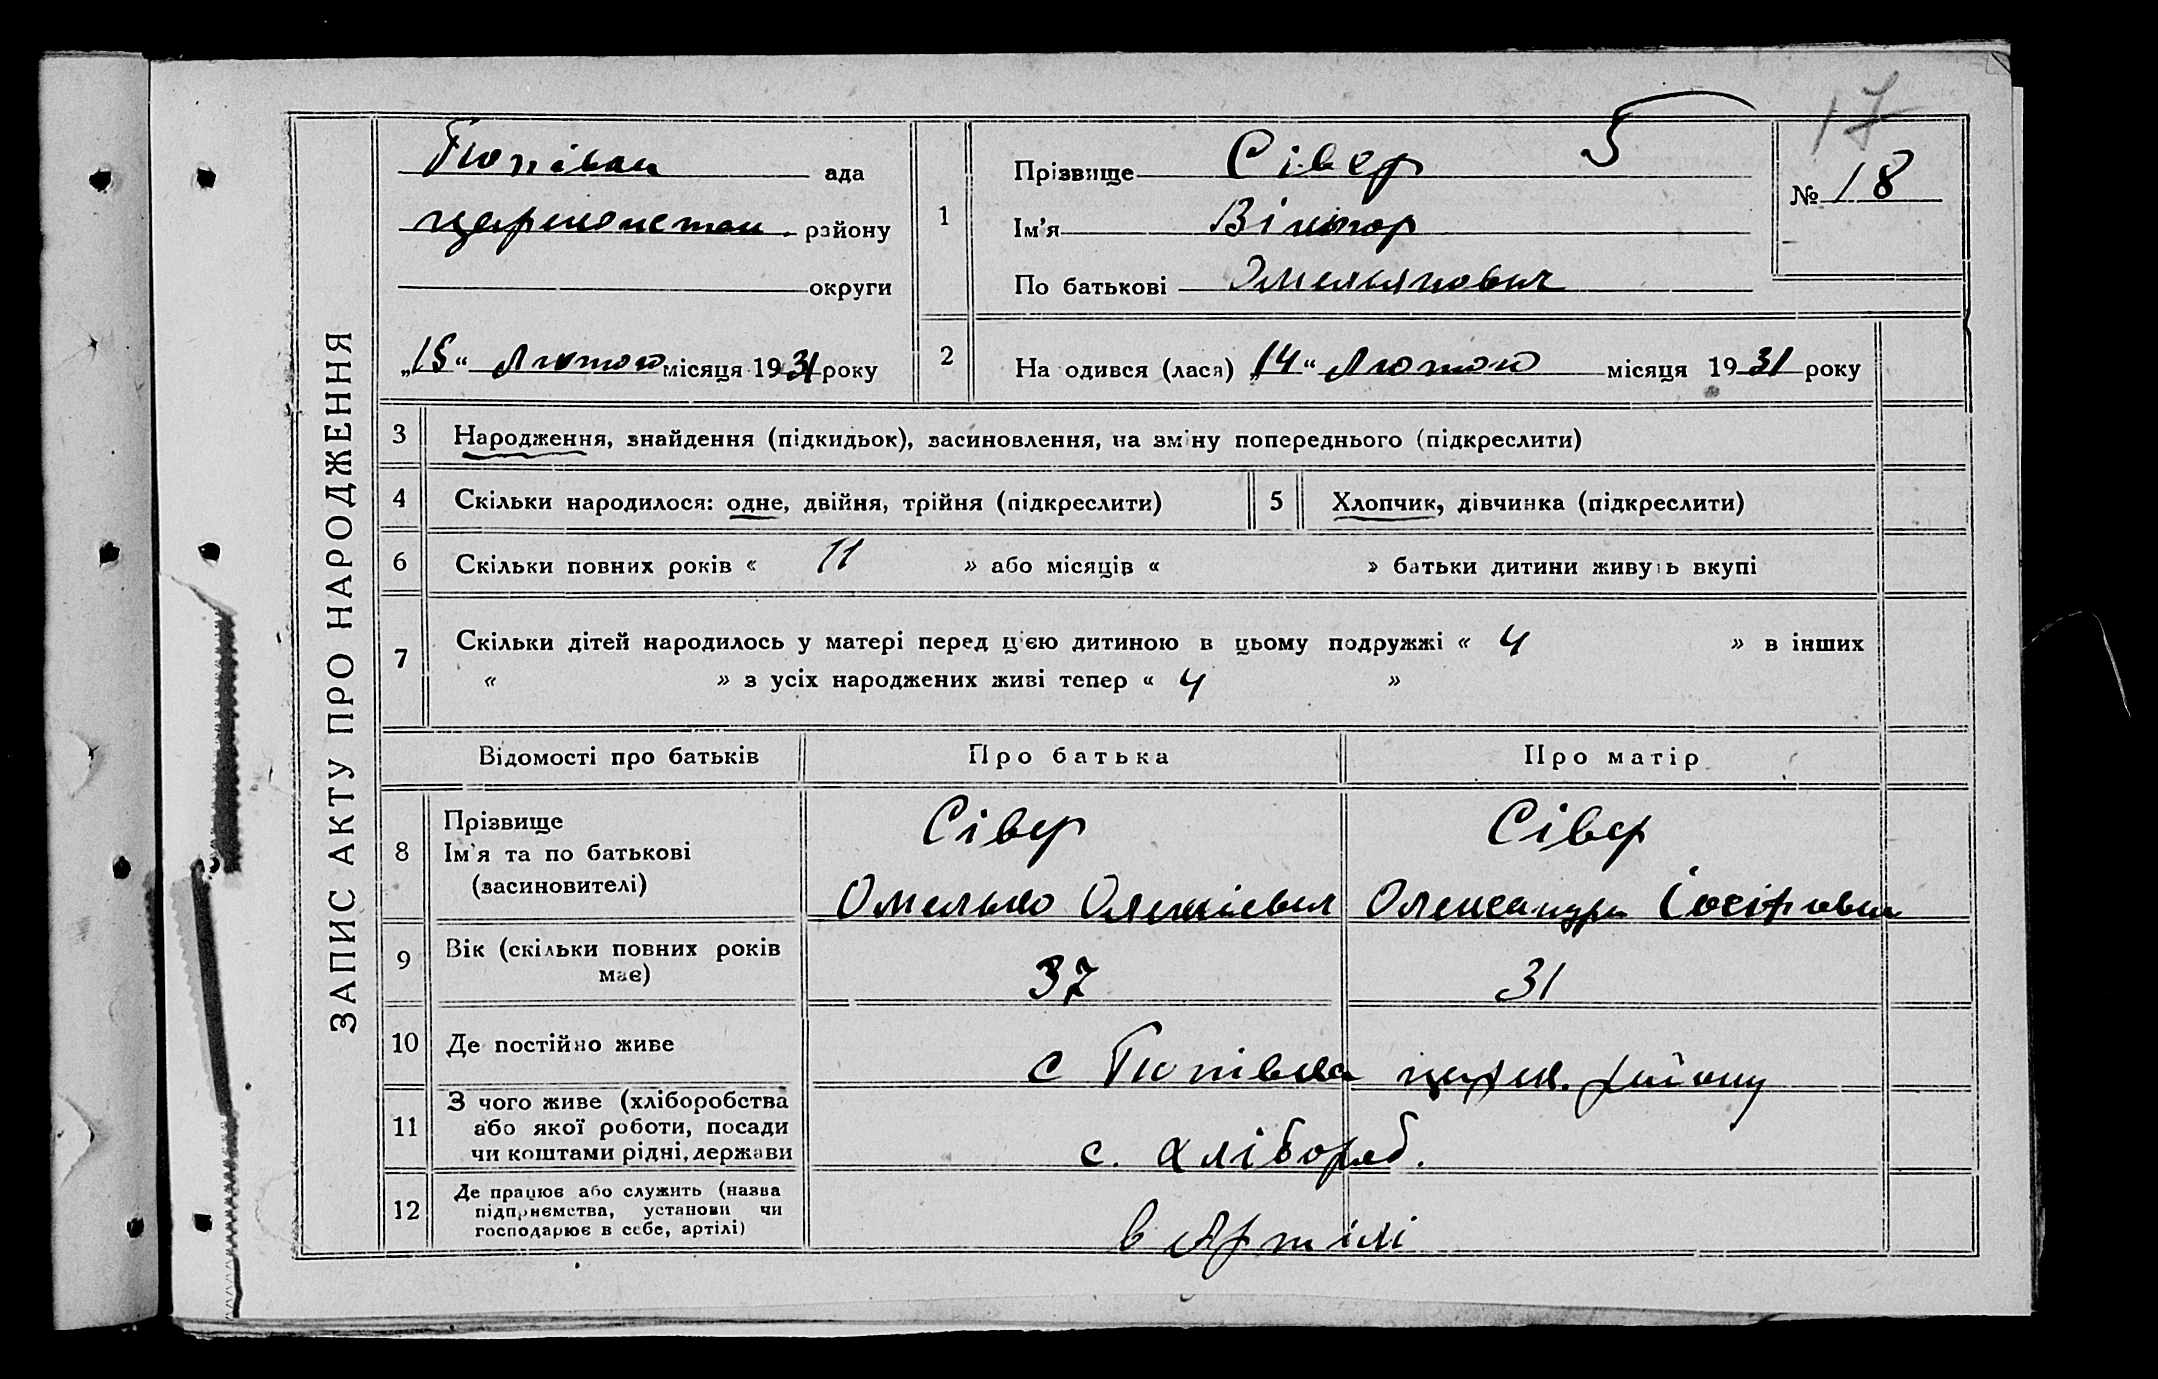 17
ЗАПИС АКТУ ПРО НАРОДЖЕННЯ
ада
районy
округи
„15“ Лютого місяця 1931 року
1
Прізвище Сівер 5
Ім'я Віктор
По батькові Омельянович
№ 18
2 На одився (лася) „14“ Лютого місяця 1931 року
3 Народження, знайдення (підкидьок), засиновлення, на зміну попереднього (підкреслити)
4 Скільки народилося: одне, двійня, трійня (підкреслити)
5 Хлопчик, дівчинка (підкреслити)
6 Скільки повних років « 11 » або місяців « » батьки дитини живуть вкупі
7 Скільки дітей народилось у матері перед ц'єю дитиною в цьому подружжі « 4 » в інших
« » з усіх народжених живі тепер « 4 »
Відомості про батьків Про батька Про матір
8 Прізвище
Ім'я та по батькові
(засиновителі)
Сівер Сівер
Омелько Олексієвич Олександра
9 Вік (скільки повних років має) 37 31
10 Де постійно живе с районy
11 З чого живе (хліборобства
або якої роботи, посади
чи коштами рідні, держави
с. хлібороб.
12 Де працює або служить (назва
підприємства, установи чи
господарює в себе, артілі)
в Артілі